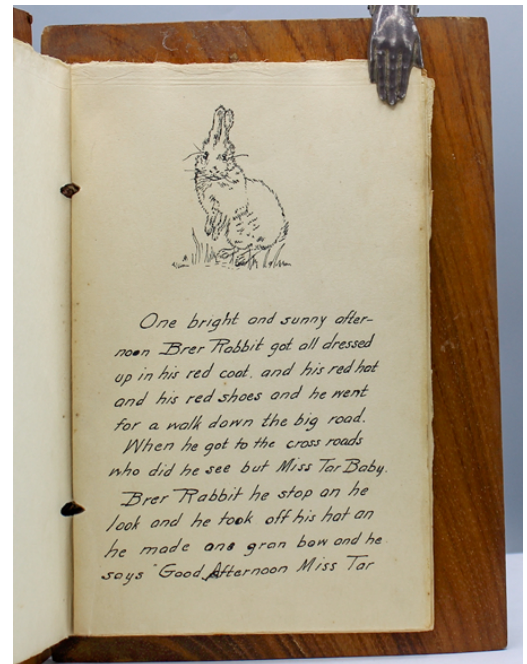 One bright and sunny after-
noon Brer Rabbit got all dressed
up in his red coat. and his red hat
and his red shoes and he went
for a walk down the big road.
When he got to the cross roads
who did he see but Miss Tar Baby.
Brer Rabbit he stop an he
look and he took off his hat an
he made one gran bow and he
says "Good Afternoon Miss Tar